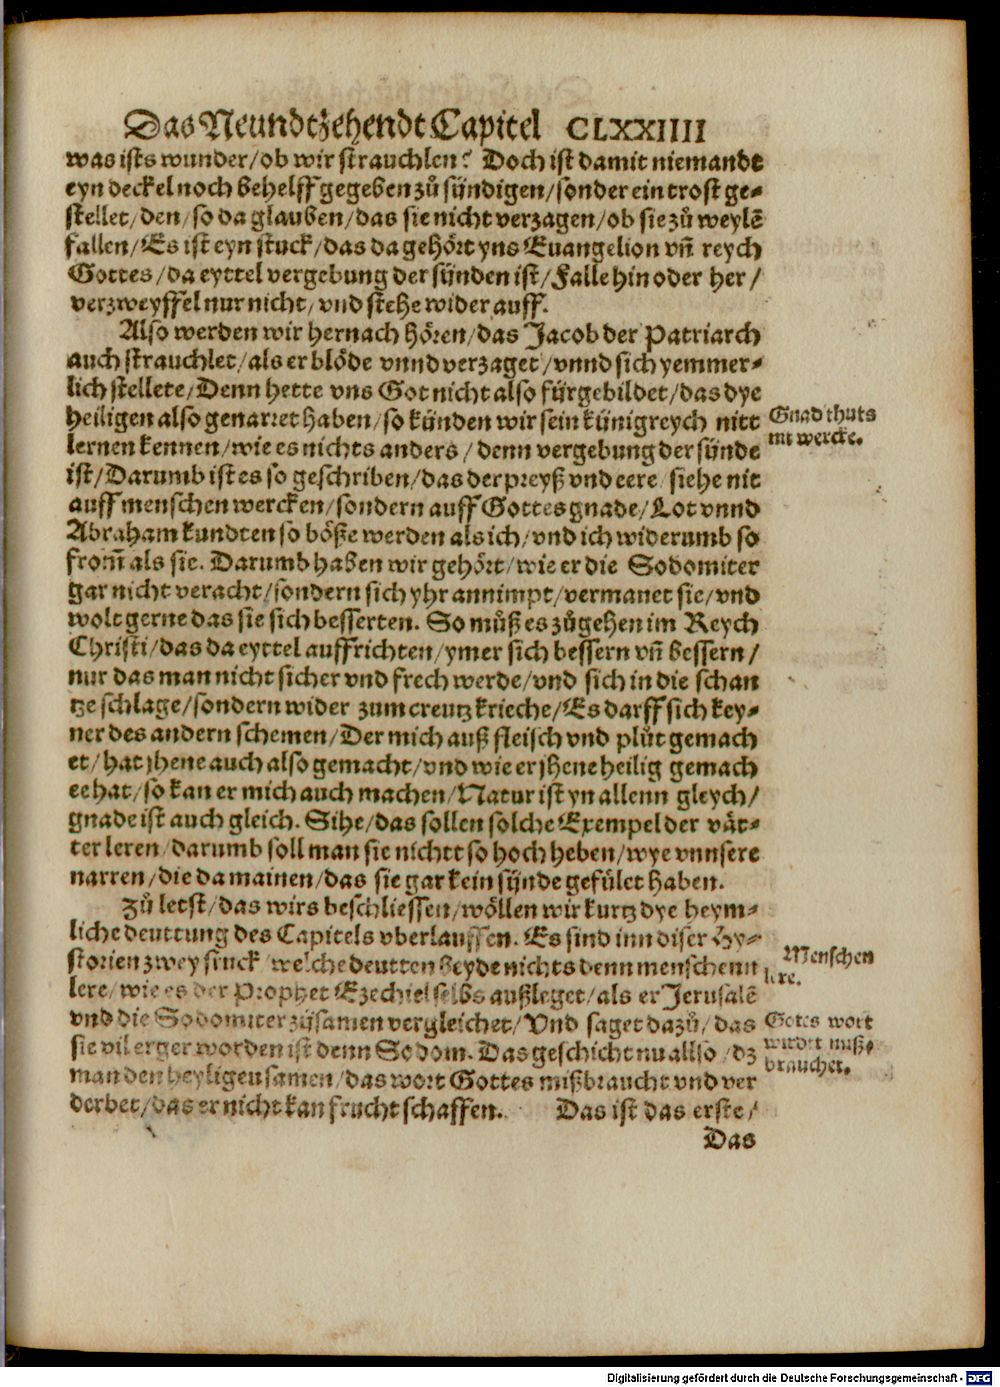 Das Neundtzehendt Capitel CLXXIIII
was ists wunder/ob wir strauchlen? Doch ist damit niemandt
eyn deckel noch behelff gegeben zů sündigen/sonder ein trost ge⸗
stellet/den/so da glauben/das sie nicht verzagen/ob sie zů weylē
fallen/Es ist eyn stuck/das da gehört yns Euangelion vn̄ reych
Gottes/da eyttel vergebung der sünden ist/Falle hin oder her/
verzweyffel nur nicht/vnd stehe wider auff.
Also werden wir hernach hören/das Jacob der Patriarch
auch strauchlet/als er blöde vnnd verzaget/vnnd sich yemmer⸗
lich stellete/Denn hette vns Got nicht also fürgebildet/das dye
heiligen also genarret haben/so künden wir sein künigreych nitt
lernen kennen/wie es nichts anders/denn vergebung der sünde
ist/Darumb ist es so geschriben/das der preyß vnd eere/siehe nit
auff menschen wercken/sondern auff Gottes gnade/Lot vnnd
Abraham kundten so böße werden als ich/vnd ich widerumb so
from̄ als sie. Darumb haben wir gehört/wie er die Sodomiter
gar nicht veracht/sondern sich yhr annimpt/vermanet sie/vnd
wolt gerne das sie sich besserten. So můß es zůgehen im Reych
Christi/das da eyttel auffrichten/ymer sich bessern vn̄ bessern/
nur das man nicht sicher vnd frech werde/vnd sich in die schan
tze schlage/sondern wider zum creutz krieche/Es darff sich key⸗
ner des andern schemen/Der mich auß fleisch vnd plůt gemach
et/hat jhene auch also gemacht/vnd wie er jhene heilig gemach
ee hat/so kan er mich auch machen/Natur ist yn allenn gleych/
gnade ist auch gleich. Sihe/das sollen solche Exempel der vät⸗
ter leren/darumb soll man sie nichtt so hoch heben/wye vnnsere
narren/die da mainen/das sie gar kein sünde gefület haben.
Zů letst/das wirs beschliessen/wöllen wir kurtz dye heym⸗
liche deuttung des Capitels vberlauffen. Es sind inn diser Hy⸗
storien zwey stuck/welche deutten beyde nichts denn menschenn
lere/wie es der Prophet Ezechiel selbs außleget/als er Jerusalē
vnd die Sodomiter zůsamen vergleichet/Vnd saget dazů/das
sie vil erger worden ist denn Sodom. Das geschicht nu allso/dz
man den heyligen samen/das wort Gottes mißbraucht vnd ver
derbet/das er nicht kan frucht schaffen. Das ist das erste/
Das
Gnad thuts
nit wercke.
Menschen
lere.
Gotes wort
wirdt miß⸗
brauchet.
Digitalisierung gefördert durch die Deutsche Forschungsgemeinschaft - DFG